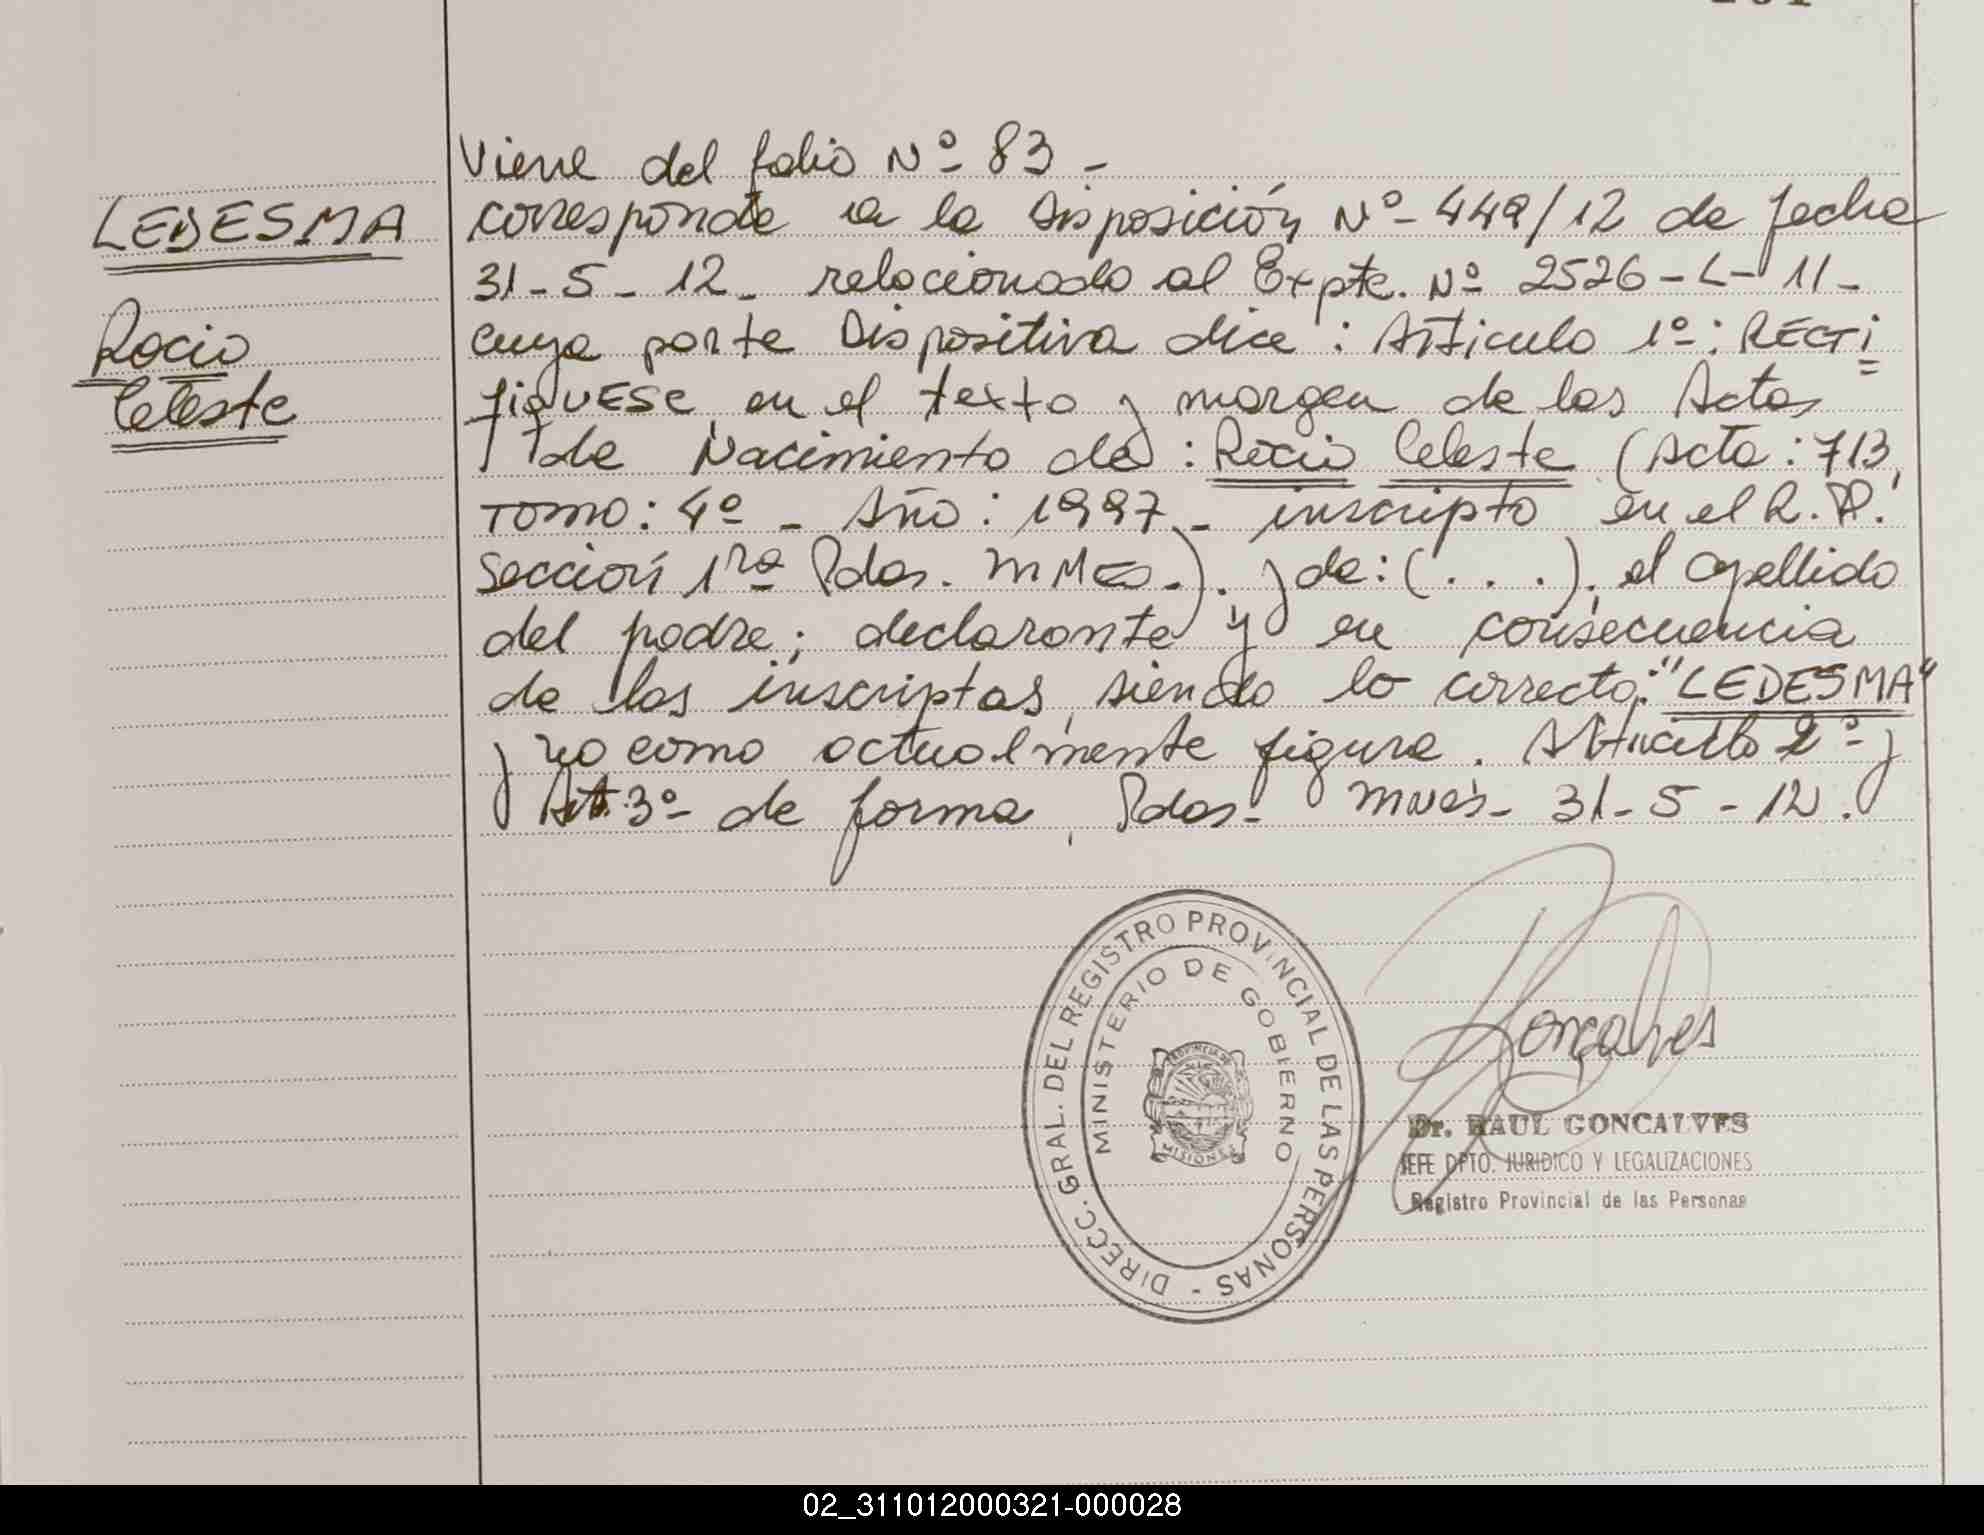 Viene del folio Nº 83 -
LEDESMA
Rocio
Celeste
corresponde a la Disposición Nº 449/12 de fecha
31-5-12- relacionado al Expte. Nº 2526-L-11-
cuya parte Dispositiva dice: Artículo 1º: RECTI
fiqUESE en el texto y margen de las Actas
de Nacimiento de: Rocio Celeste (Acta: 713,
TOMO: 4º - Año: 1997 - inscripto en el R.P.
Sección 1ra Pdas. Mnes.). y de: (. . .). el apellido
del padre; declarante y en consecuencia
de las inscriptas, siendo lo correcto: "LEDESMA"
y no como actualmente figura. Artículo 2º y
Art. 3º de forma. Pdas- Mnes- 31-5-12.
DIRECC. GRAL. DEL REGISTRO PROVINCIAL DE LAS PERSONAS -
MINISTERIO DE GOBIERNO
PROVINCIA DE
MISIONES
Goncalves
Dr. RAUL GONCALVES
JEFE DPTO. JURIDICO Y LEGALIZACIONES
Registro Provincial de las Personas
02_311012000321-000028